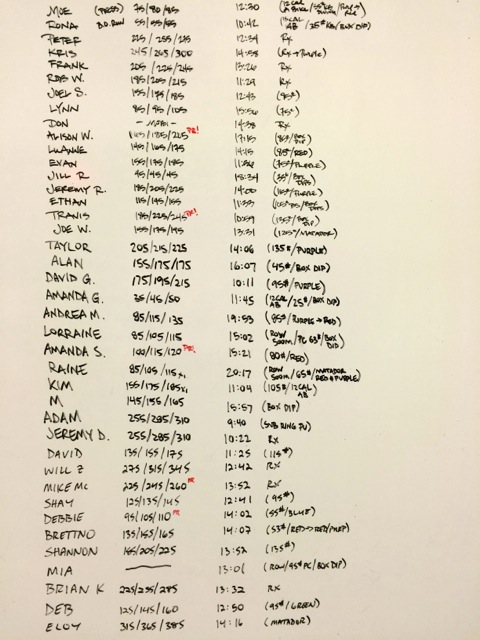 MOE (PRESS) 75/80/85 12:30
RONA B.D. ROW 55/55/65 10:42 12CAL AB / 25# KB/BOX DIP
PETER 225/255/275 12:34 Rx
KRIS 245/265/300 14:58 (Rx → PURPLE)
FRANK 205/225/245 13:26 Rx
ROB W. 185/205/215 11:29 Rx
JOEL S. 155/175/185 12:43 (95#)
LYNN 85/95/105 15:56 (75#)
DON 14:38 Rx
ALISON W. 165/185/205 PR! 17:15 BOX DIP)
LUANNE 145/165/175 14:45 (85#/RED)
EVAN 155/175/185 11:36 (75#/PURPLE)
JILL R 45/45/45 18:34 (35#/BOX DIPS)
JEREMY R. 185/205/225 14:00 PURPLE)
ETHAN 115/145/155 11:33 BOX DIPS)
TRAVIS 185/225/245 PR! 10:59 (135#/BOX DIP)
JOE W. 155/175/195 13:31 (120#/MATADOR)
TAYLOR 205/215/225 14:06 (135#/PURPLE)
ALAN 155/175/175 16:07 (45#/BOX DIP)
DAVID G. 175/195/215 10:11 (95#/PURPLE)
AMANDA G. 35/45/50 11:45 (12CAL AB/25#/BOX DIP)
ANDREA M. 85/115/135 19:53 (85#/PURPLE → RED)
LORRAINE 85/105/115 15:02 (ROW 500m/PC 63#/BOX DID)
AMANDA S. 100/115/120 PR! 15:21 (80#/RED)
RAINE 85/105/115x1 20:17 (ROW 500m/65#/MATADOR RED & PURPLE)
KIM 155/175/185x1 11:04 (105#/12CAL AB)
M 145/155/165 15:57 (BOX DIP)
ADAM 255/285/310 9:40 (SUB RING PU)
JEREMY D. 255/285/310 10:22 Rx
DAVID 135/155/175 11:25 (115#)
WILL Z 275/315/345 12:42 Rx
MIKE MC 225/245/260 PR 13:52 Rx
SHAY 125/135/145 12:41 (95#)
DEBBIE 95/105/110 PR 14:02 (55#/BLUE)
BRETTNO 135/155/165 14:07 (53#/RED → RED/PURP)
SHANNON 165/205/225 13:52 (135#)
MIA 13:01 (ROW/95# PC/BOX DIP)
BRIAN K 225/235/285 13:32 Rx
DEB 125/145/160 12:50 (95#/GREEN)
ELOY 315/365/385 14:16 (MATADOR)